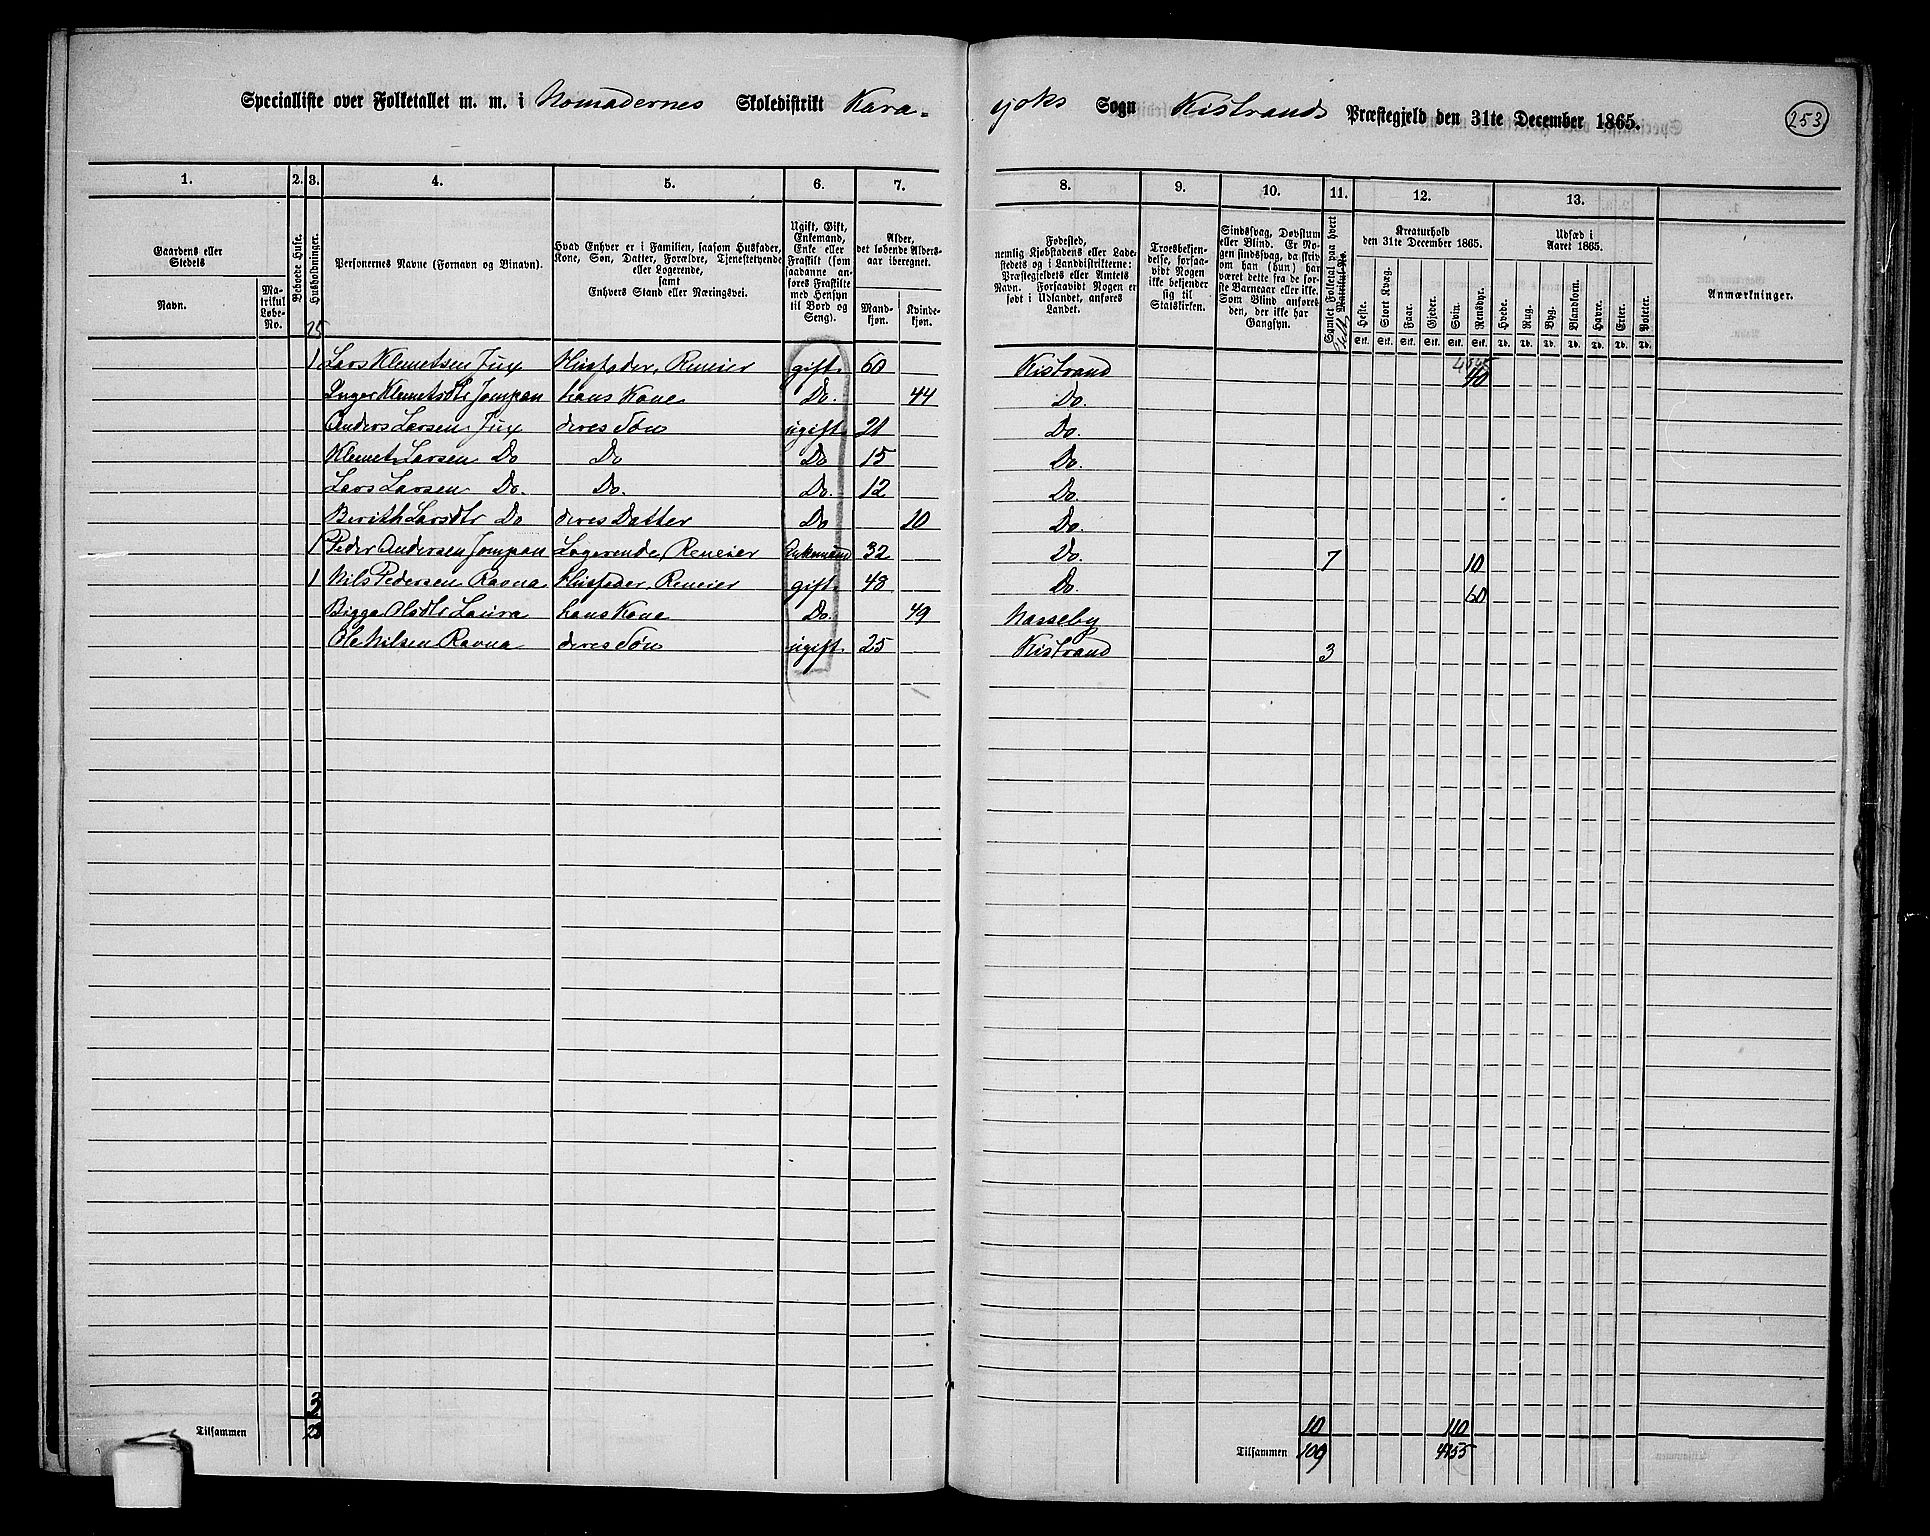 Specialliste over Folketallet m. m. i Nomadernes Skoledistrikt Kara-
yoks Sogn Kistrands Præstegjeld den 31te December 1865.
253
1. 2. 3. 4. 5. 6. 7. 8. 9. 10. 11. 12. 13.
Gaardens eller Stedets
Navn.
Matrikul Løbe-No.
Beboede Huse.
Husholdninger.
Personernes Navne (Fornavn og Binavn).
Hvad Enhver er i Familien, saasom Husfader, Kone, Søn, Datter, Forældre, Tjenestetyende eller Logerende, samt Enhvers Stand eller Næringsvei.
Ugift, Gift, Enkemand, Enke eller Fraskilt (som saadanne anføres Fraskilte med Hensyn til Bord og Seng).
Alder, det løbende Alders-aar iberegnet.
Mand-kjøn.
Kvinde-kjøn.
Fødested, nemlig Kjøbstadens eller Ladestedets og i Landdistrikterne: Præstegjeldets eller Amtets Navn. Forsaavidt Nogen er født i Udlandet, anføres Landet.
Troesbekjendelse, forsaavidt Nogen ikke bekjender sig til Statskirken.
Sindssvag, Døvstum eller Blind. Er Nogen sindssvag, da skrives om han (hun) har været dette fra de første Barneaar eller ikke. Som Blind anføres den, der ikke har Gangsyn.
Samlet Folketal paa hvert Matrikul-No.
Kreaturhold den 31te December 1865.
Heste. Stort Kvæg. Faar. Gjeder. Svin. Rensdyr.
Stk. Stk. Stk. Stk. Stk. Stk.
Udsæd i Aaret 1865.
Hvede. Rug. Byg. Blandkorn. Havre. Erter. Poteter.
Td. Td. Td. Td. Td. Td. Td.
Anmærkninger.
25
1 Lars Klemetsen Jux Husfader, Reneier gift 60 Kistrand 40
Inger Klemetsdtr Jompan hans Kone Do. 44 Do.
Anders Larsen Jux deres Søn ugift 21 Do.
Klemet Larsen Do Do Do 15 Do.
Lars Larsen Do. Do. Do. 12 Do.
Berith Larsdtr Do deres Datter Do 10 Do.
1 Peder Andersen Jompan Logerende, Reneier Enkemand 32 Do. 7 10
1 Nils Pedersen Ravna Husfader, Reneier gift 48 Do. 60
Bigga Olsdtr Laura hans Kone Do. 49 Nasseby
Ole Nilsen Ravna deres Søn ugift 25 Kistrand 3
3 10 110
Tilsammen 28 Tilsammen 109 4755